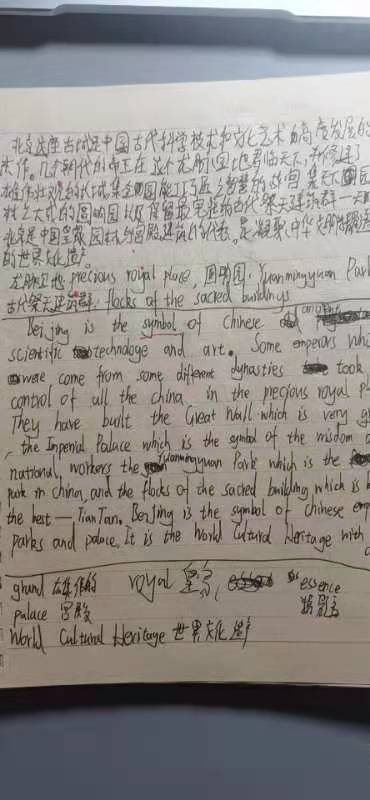 北京这座古城是中国古代科学技术和文化艺术高度发展的
杰作。几个朝代的帝王在这个龙脉宝地君临天下,
的长城,集全国能工巧匠之智慧的故宫,集天下园
林之大成的圆明园以及保留最完整的古代祭天建筑群一天
北京是中国皇家园林与宫殿建筑的代表,是凝聚中华文明
的世界文化遗产。
龙脉宝地 precious royal place, 圆明园: Yuanmingyuan Park
古代祭天建筑群: flocks of the sacred buildings
Beijing is the symbol of Chinese ancient
scientific technology and art. Some emperors
were come from some different dynasties took
control of all the china in the precious royal
They have built the Great Wall which is very
, the Imperial Palace which is the symbol of the wisdom
national workers the Yuanmingyuan Park which is the
park in china, and the flocks of the sacred building which is
the best — TianTan. Beijing is the symbol of chinese
parks and palace. It is the World Cultural Heritage with
grand 雄伟的 royal 皇家, essence
palace 宫殿 精髓
World Cultural Heritage 世界文化遗产